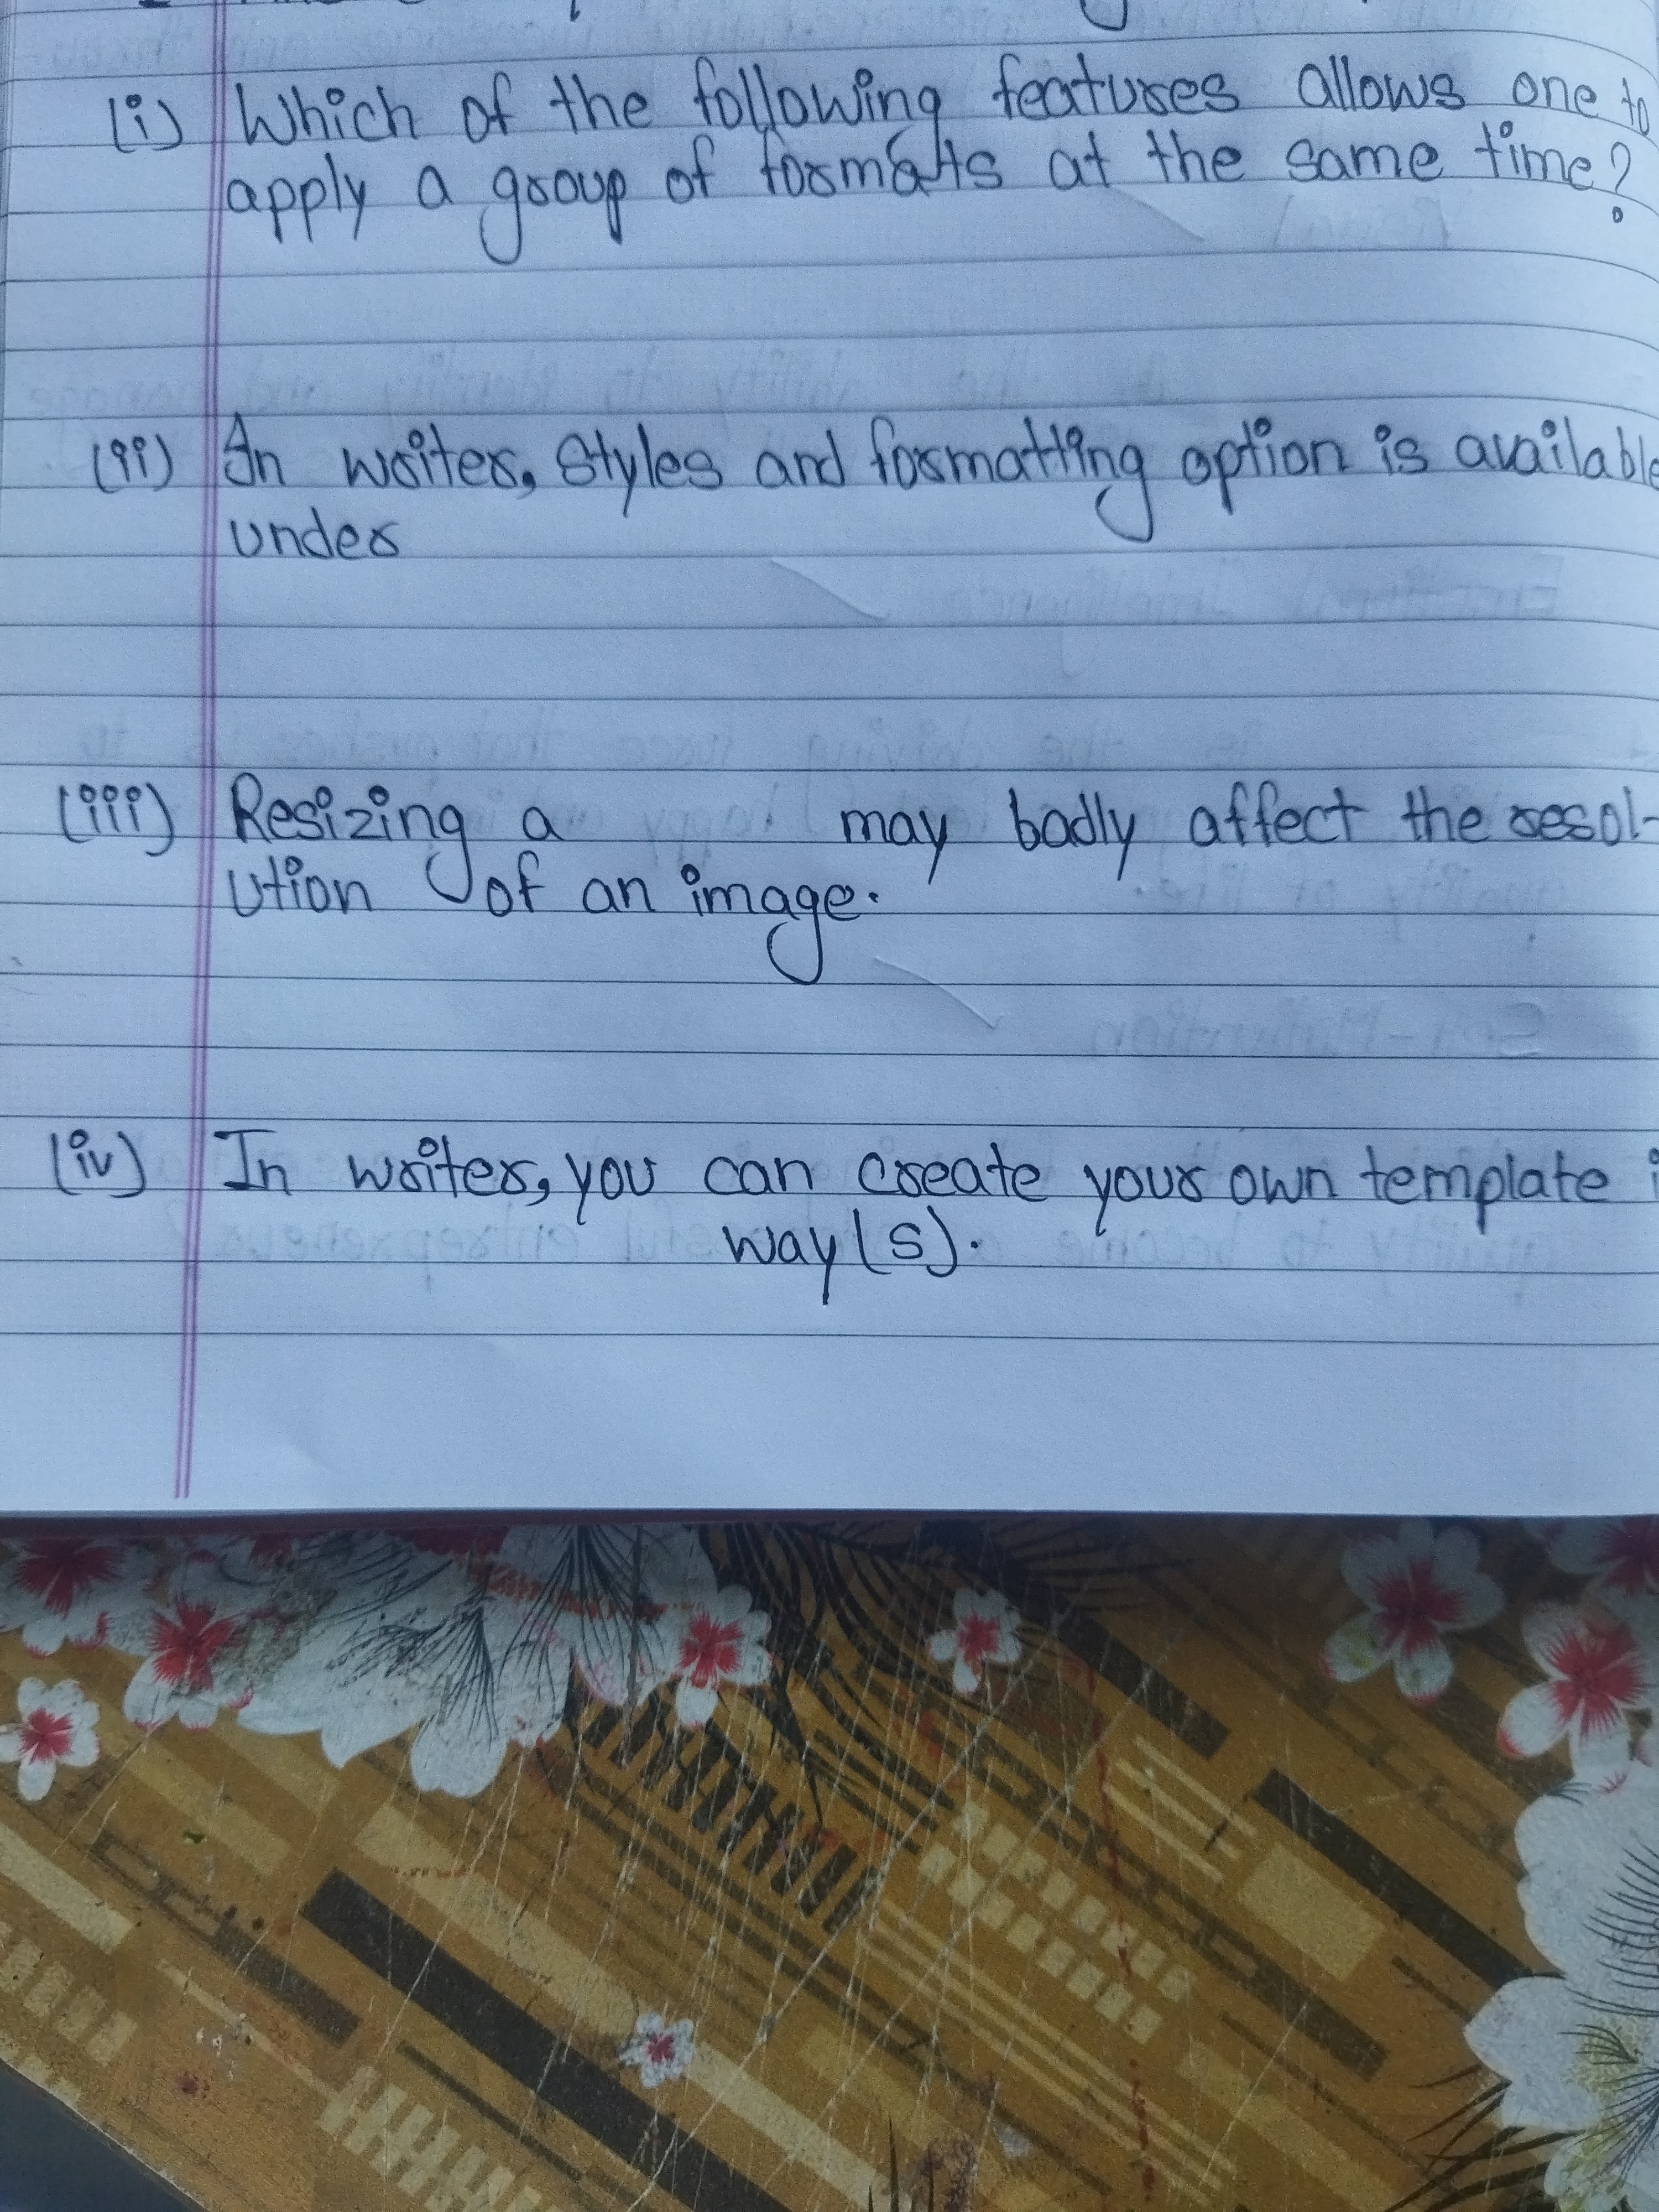 (i) Which of the following features allows one to
apply a group of formats at the same time?
(ii) In writer, Styles and formatting option is available
under
(iii) Resizing a may badly affect the resol-
ution of an image.
(iv) In writer, you can create your own template
way(s).